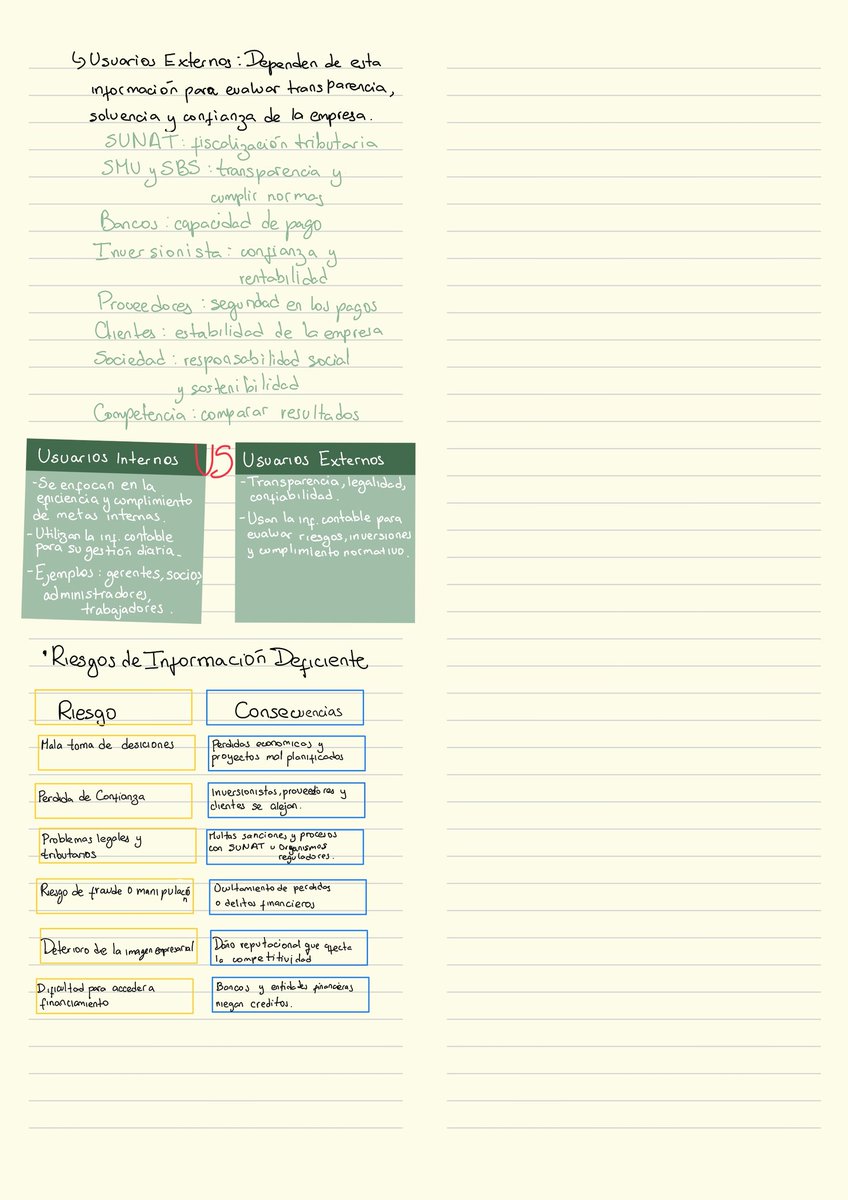 ↳ Usuarios Externos: Dependen de esta
información para evaluar transparencia,
solvencia y confianza de la empresa.
SUNAT: fiscalización tributaria
SMU y SBS: transparencia y
cumplir normas
Bancos: capacidad de pago
Inversionista: confianza y
rentabilidad
Proveedores: seguridad en los pagos
Clientes: estabilidad de la empresa
Sociedad: responsabilidad social
y sostenibilidad
Competencia: comparar resultados
Usuarios Internos
- Se enfocan en la
eficiencia y cumplimiento
de metas internas.
- Utilizan la inf. contable
para su gestión diaria.
- Ejemplos: gerentes, socios,
administradores,
trabajadores.
VS
Usuarios Externos
- Transparencia, legalidad,
confiabilidad.
- Usan la inf. contable para
evaluar riesgos, inversiones
y cumplimiento normativo.
• Riesgos de Información Deficiente
Riesgo
Consecuencias
Mala toma de desiciones
Perdidas economicas y
proyectos mal planificados
Perdida de Confianza
Inversionistas, proveedores y
clientes se alejan.
Problemas legales y
tributarios
Multas sanciones y procesos
con SUNAT u organismos
reguladores.
Riesgo de fraude o manipulación
Ocultamiento de perdidas
o delitos financieros
Deterioro de la imagen empresarial
Daño reputacional que afecta
la competitividad
Dificultad para acceder a
financiamiento
Bancos y entidades financieras
niegan creditos.